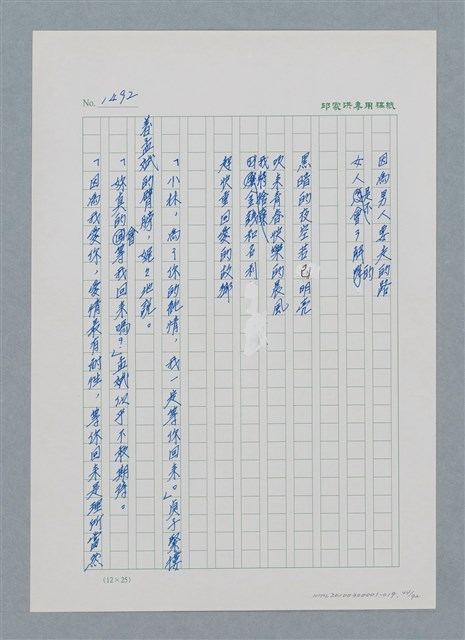 No. 1492
邱家洪專用稿紙
因為男人要走的路
女人是不會了解的
黑暗的夜空若已明亮
吹來青春快樂的晨風
我將捨棄
金錢和名利
趕快重回愛的故鄉
「小林，為了你的歡情，我一定等你回來。」貞子緊摟
着孟斌的臂膀，她說。
「妳真的會等我回來嗎？」孟斌似乎不敢期待。
「因為我愛你，愛情最有耐性，等你回來是理所當然
(12×25)